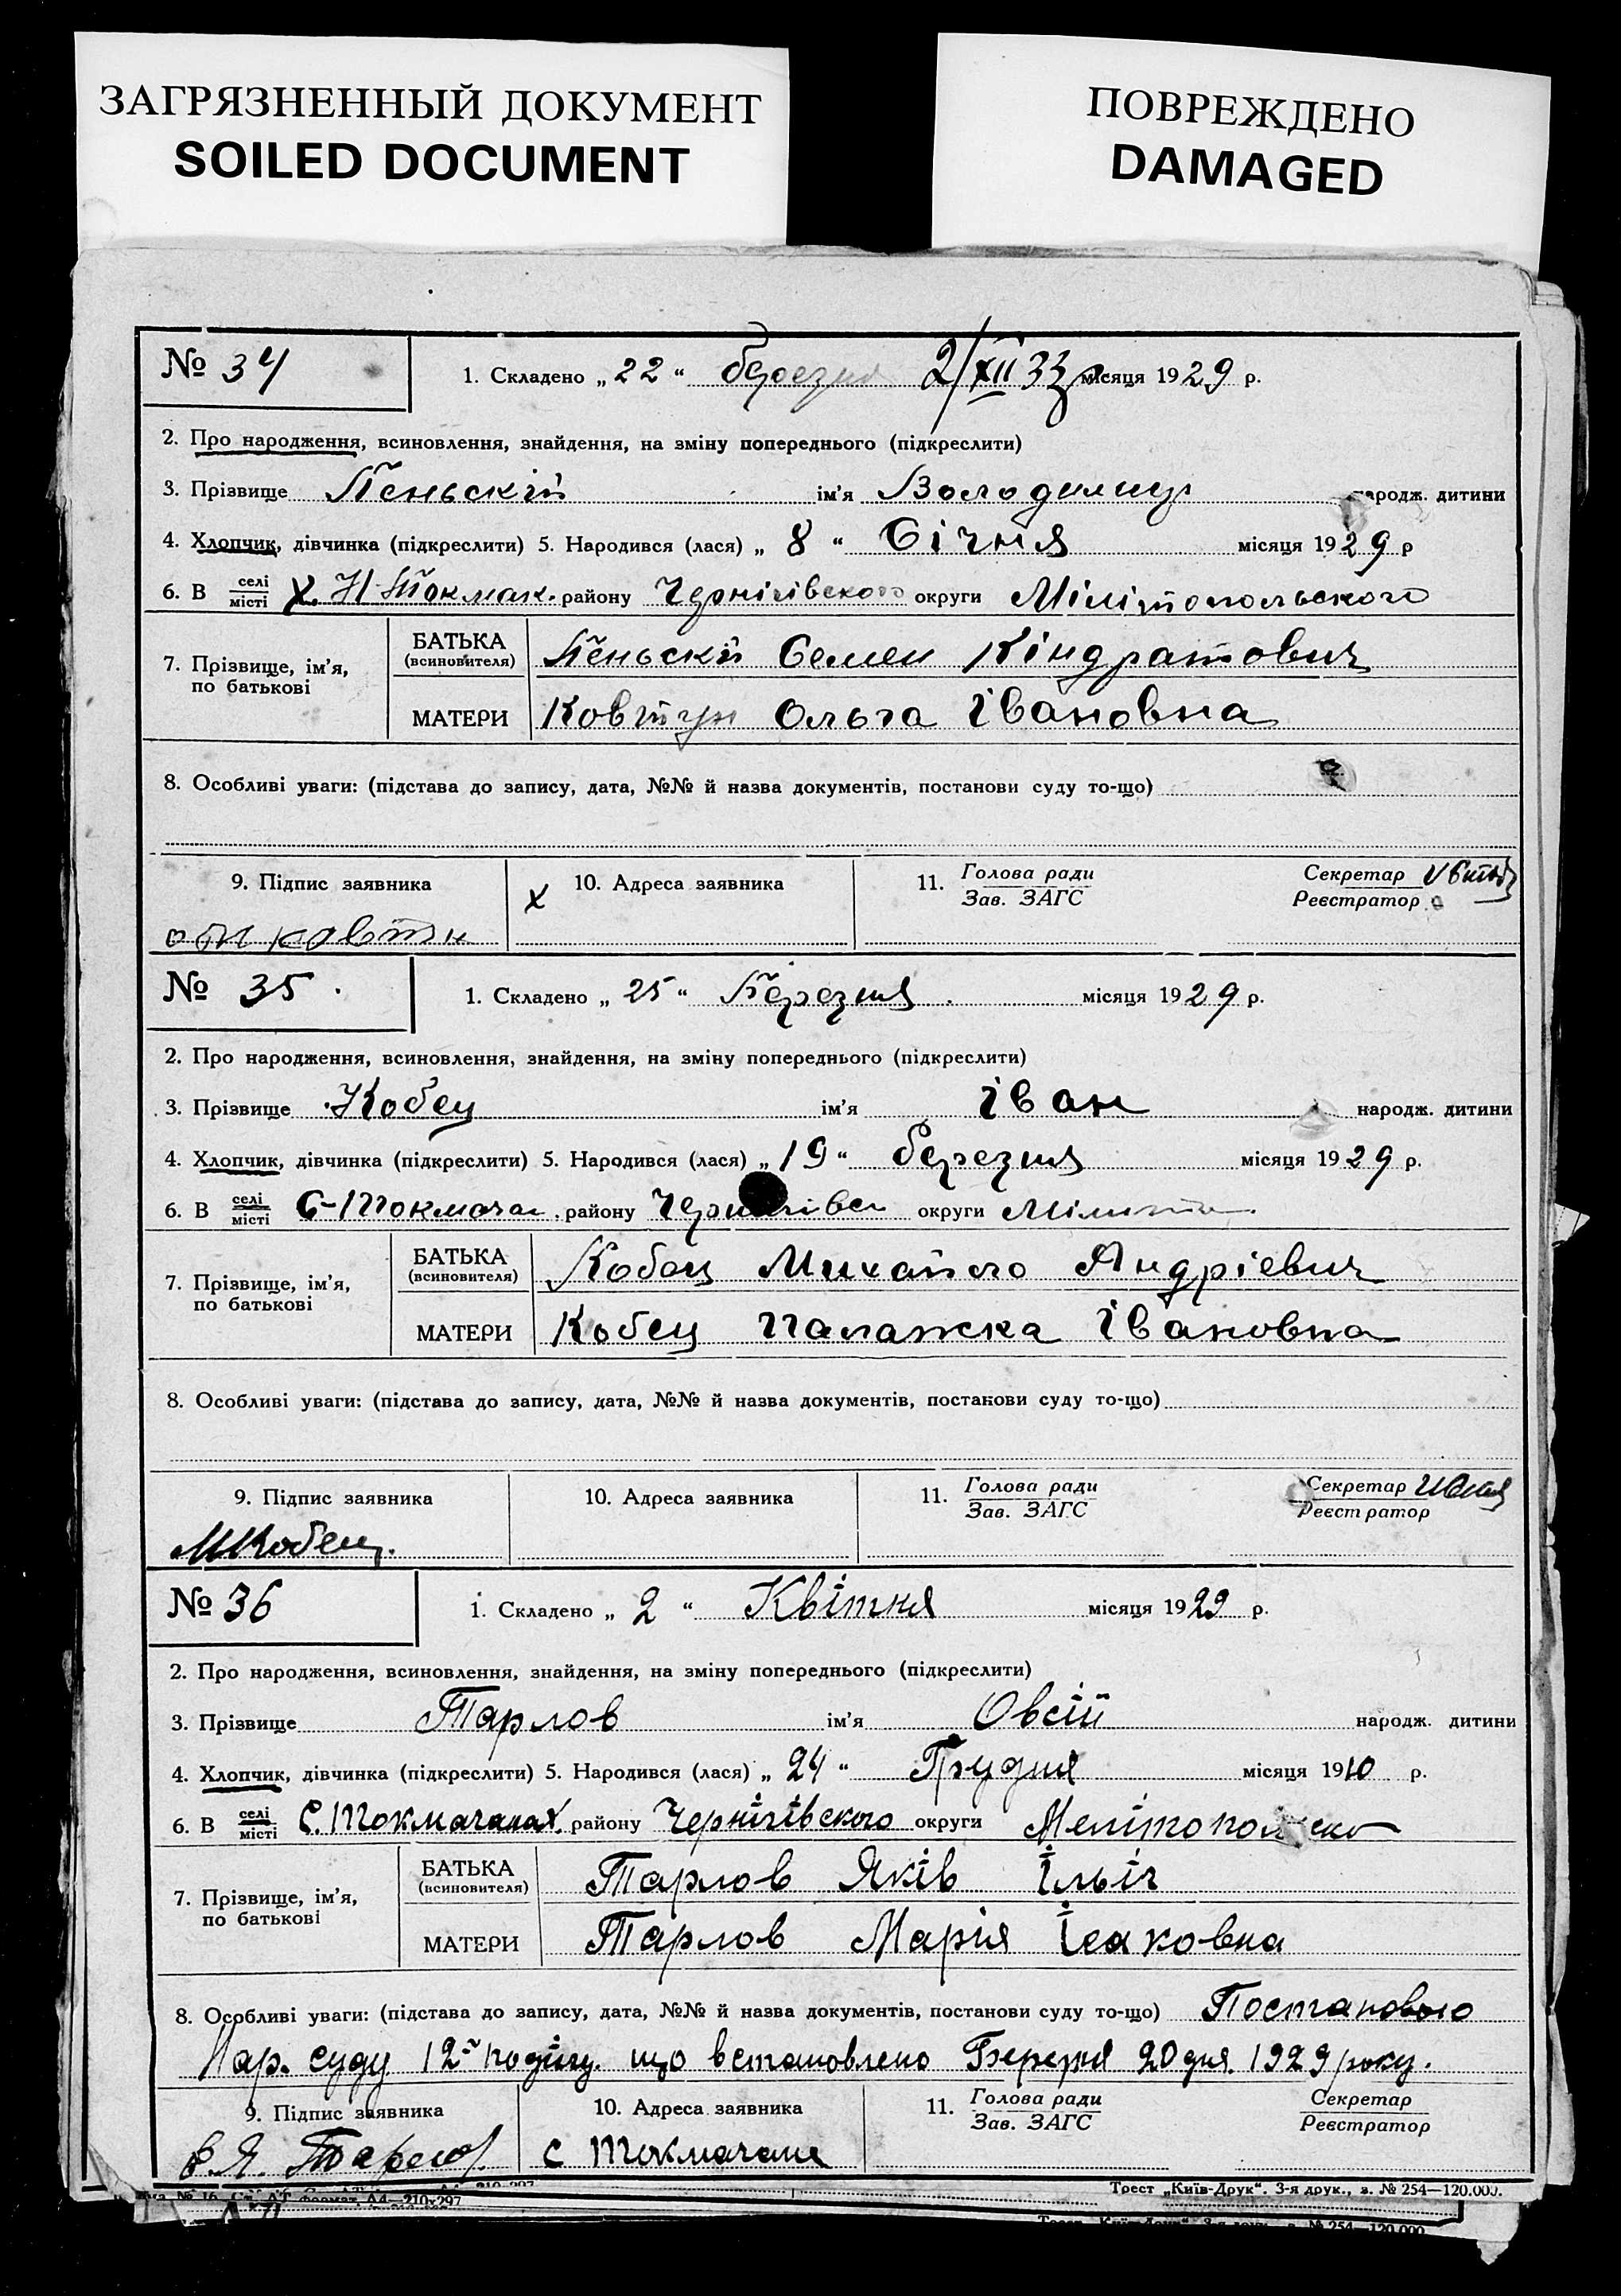 ЗАГРЯЗНЕННЫЙ ДОКУМЕНТ
SOILED DOCUMENT
ПОВРЕЖДЕНО
DAMAGED
№ 34
1. Складено „ 22 “ березня 2/XII 33 р місяця 1929 р.
2. Про народження, всиновлення, знайдення, на зміну попереднього (підкреслити)
3. Прізвище Пеньскій ім’я Володимир народж. дитини
4. Хлопчик, дівчинка (підкреслити) 5. Народився (лася) „ 8 “ Січня місяця 1929 р
6. В селі/місті х. Н-Токмак. району Чернігівского округи Мілітопольского
7. Прізвище, ім’я, по батькові
БАТЬКА (всиновителя) Пеньскй Семен Кіндратович
МАТЕРИ Ковтун Ольга Івановна
8. Особливі уваги: (підстава до запису, дата, №№ й назва документів, постанови суду то-що)
9. Підпис заявника
10. Адреса заявника
11. Голова ради / Зав. ЗАГС
Секретар / Реєстратор
№ 35
1. Складено „ 25 “ Березня місяця 1929 р.
2. Про народження, всиновлення, знайдення, на зміну попереднього (підкреслити)
3. Прізвище Кобец ім’я Іван народж. дитини
4. Хлопчик, дівчинка (підкреслити) 5. Народився (лася) „ 19 “ березня місяця 1929 р.
6. В селі/місті району округи
7. Прізвище, ім’я, по батькові
БАТЬКА (всиновителя) Кобец Михайло Андріевич
МАТЕРИ Кобец Палажка Івановна
8. Особливі уваги: (підстава до запису, дата, №№ й назва документів, постанови суду то-що)
9. Підпис заявника
МКобец.
10. Адреса заявника
11. Голова ради / Зав. ЗАГС
Секретар / Реєстратор
№ 36
1. Складено „ 2 “ Квітня місяця 1929 р.
2. Про народження, всиновлення, знайдення, на зміну попереднього (підкреслити)
3. Прізвище Тарлов ім’я Овсій народж. дитини
4. Хлопчик, дівчинка (підкреслити) 5. Народився (лася) „ 24 “ Грудня місяця 1910 р.
6. В селі/місті С. Токмачанах. району Чернігівского округи
7. Прізвище, ім’я, по батькові
БАТЬКА (всиновителя) Тарлов Яків Ільіч
МАТЕРИ Тарлов Марія Ісаковна
8. Особливі уваги: (підстава до запису, дата, №№ й назва документів, постанови суду то-що) Постановою
Нар. суду 12ї що встановлено Березня 20 дня 1929 року.
9. Підпис заявника
10. Адреса заявника
с Токмачане
11. Голова ради / Зав. ЗАГС
Секретар / Реєстратор
Трест „Київ-Друк“. 3-я друк., з. № 254—120.000.